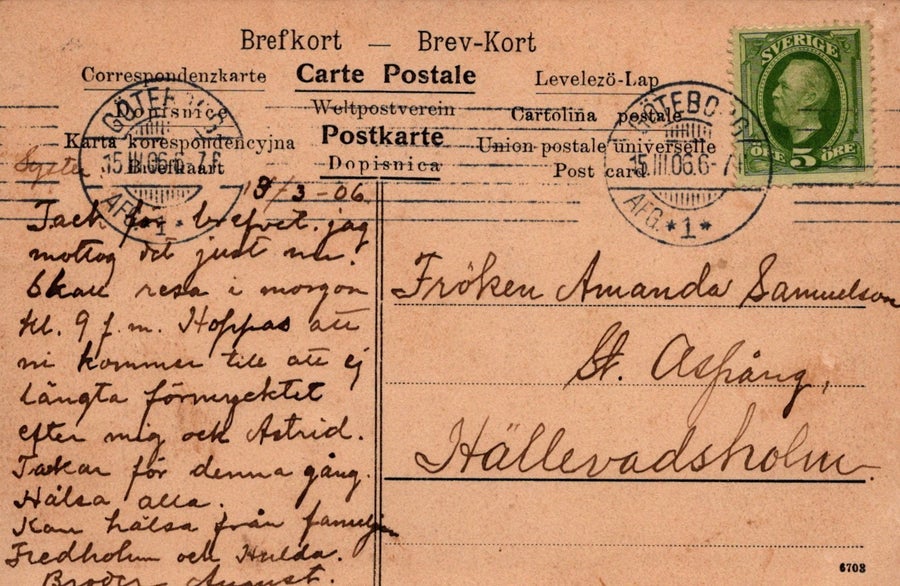 Brefkort — Brev-Kort
Correspondenzkarte Carte Postale Levelezö-Lap
Dopisnice Weltpostverein Cartolina postale
Karta korespondencyjna Postkarte Union postale universelle
Briefkaart Dopisnica Post card
SVERIGE
ÖRE 5 ÖRE
GÖTEBORG
15.III.06.6-7
AFG. *1*
GÖTEBORG
15.III.06.6-7
AFG. *1*
Syster
13/3-06.
Tack för brefvet. jag
mottog det just nu.
Skall resa i morgon
kl. 9 f.m. Hoppas att
ni kommer till att ej
längta förmycktet
efter mig och Astrid.
Tackar för denna gång.
Hälsa alla.
Kan hälsa från familjen
Fredholm och Hulda.
Broder August.
Fröken Amanda Samuelson
St. Aspång,
Hällevadsholm.
6703